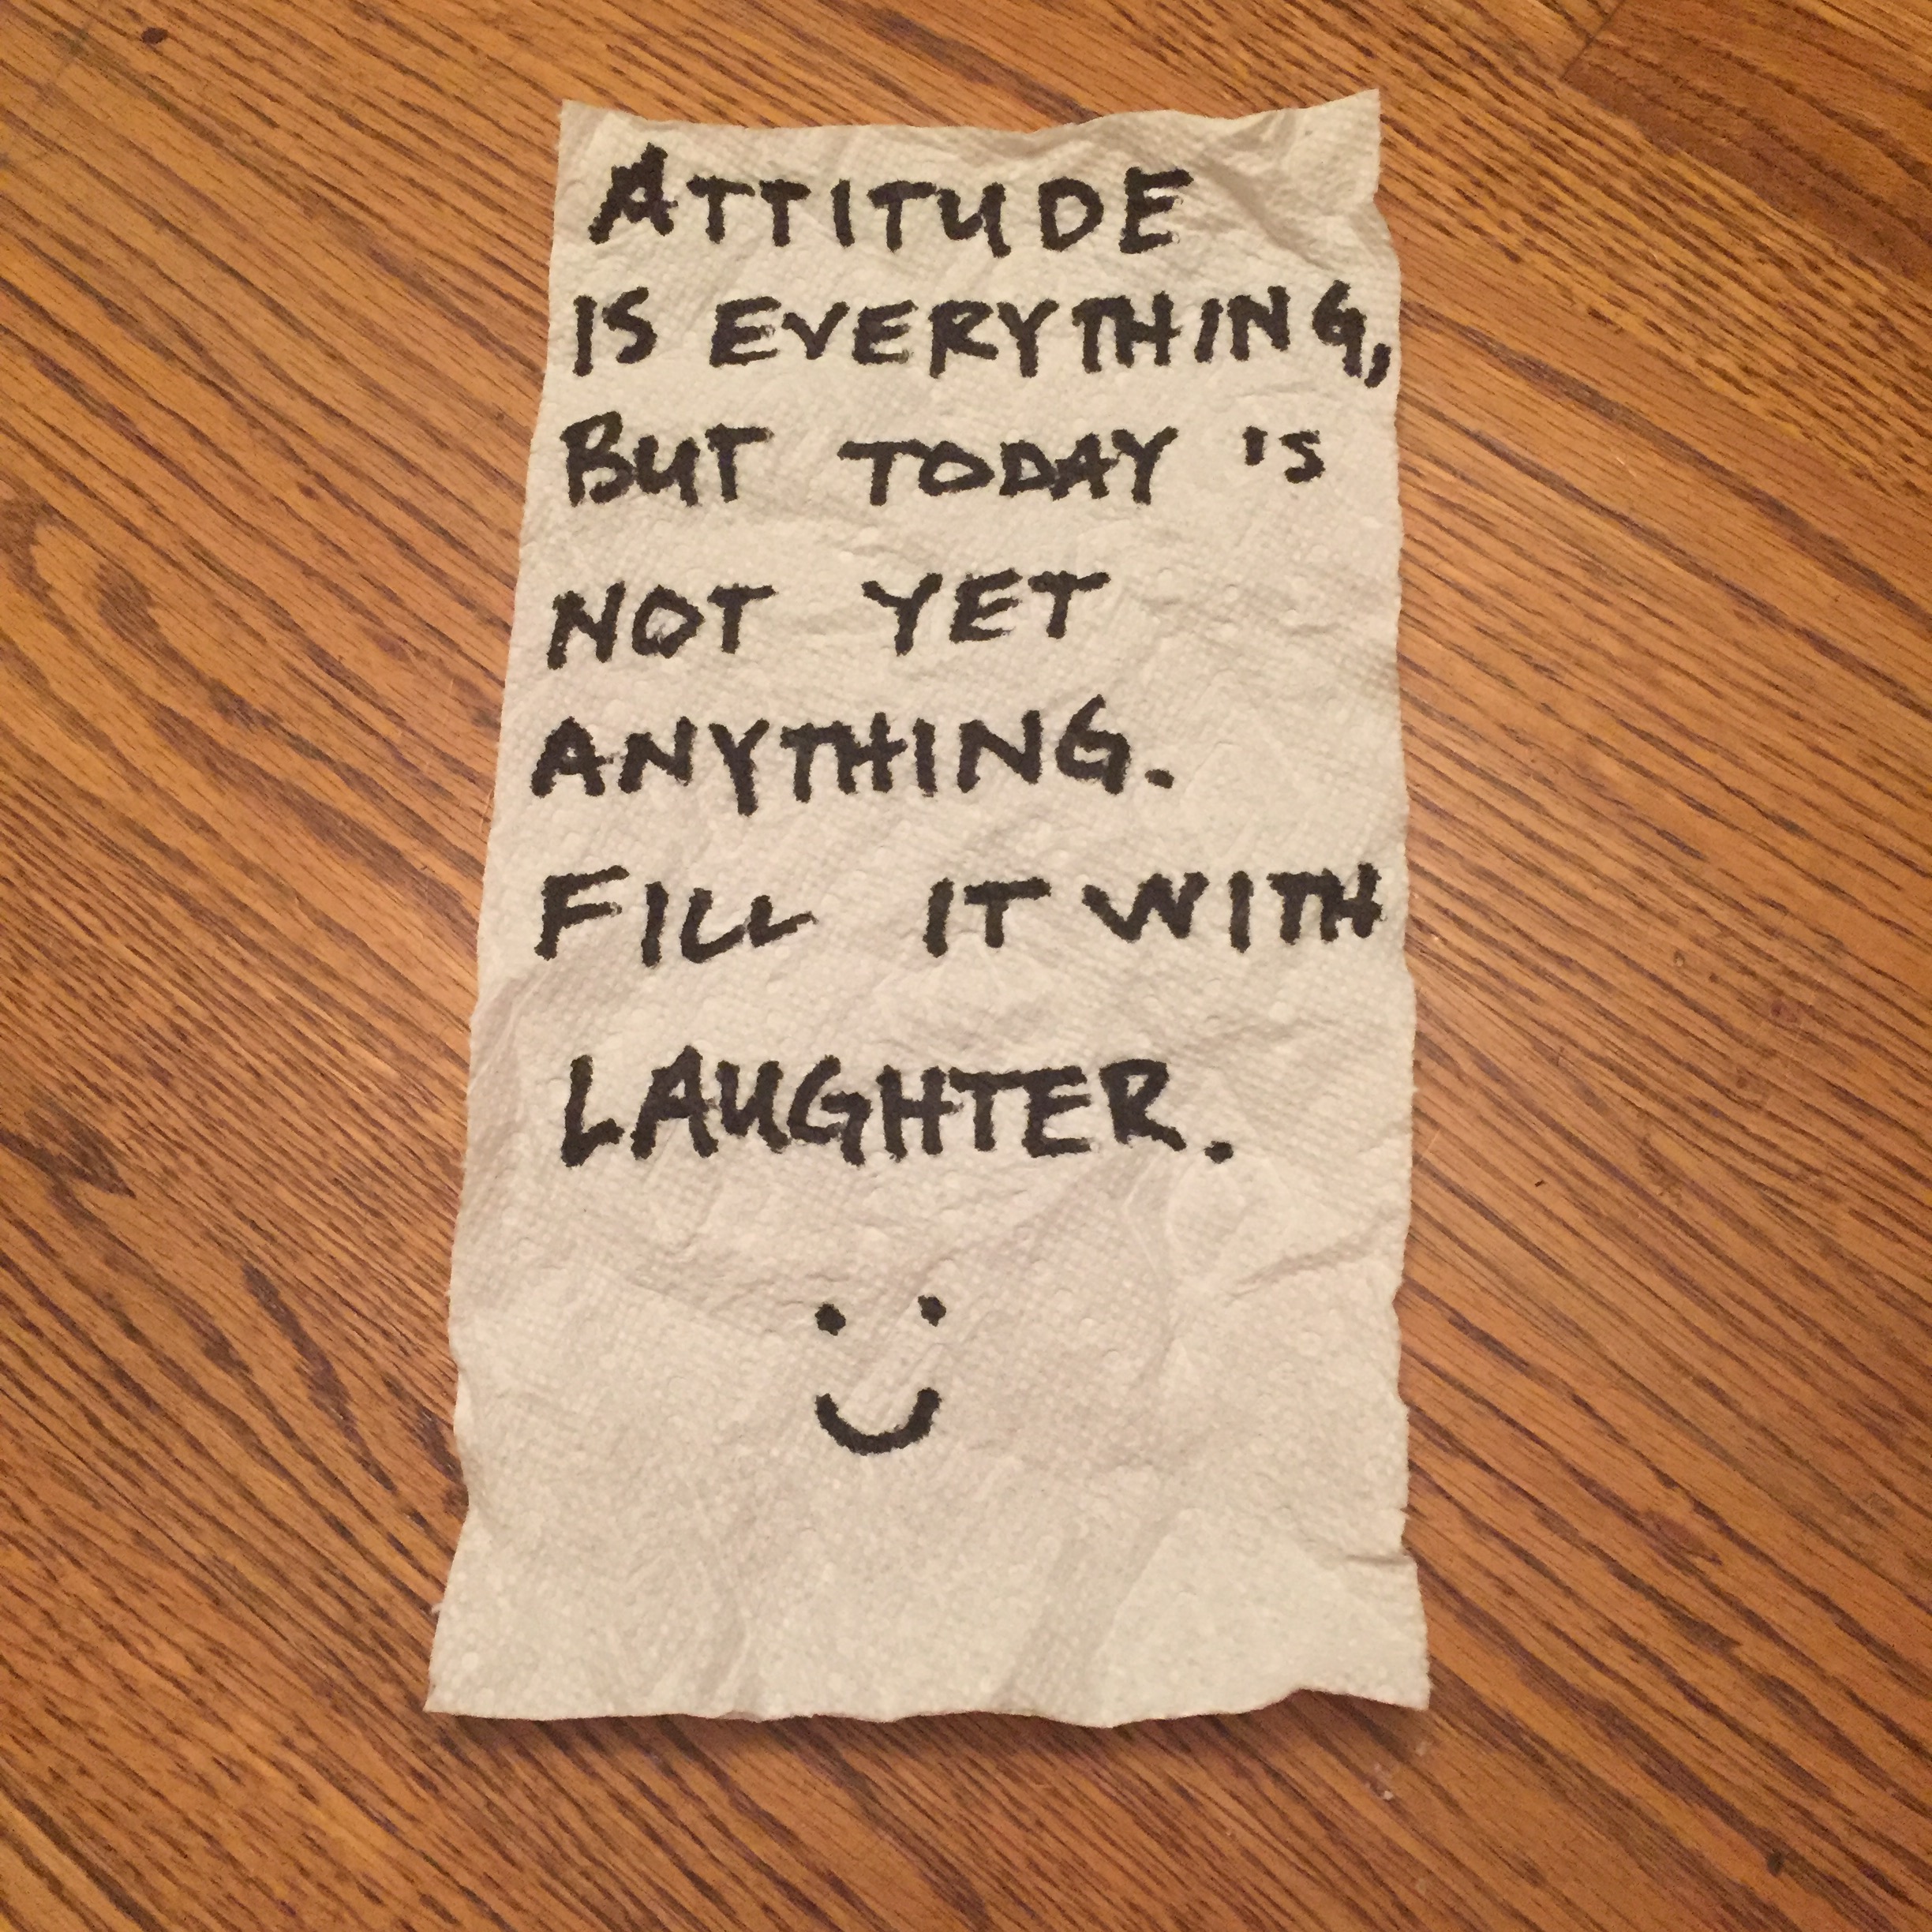 ATTITUDE
IS EVERYTHING,
BUT TODAY IS
NOT YET
ANYTHING.
FILL IT WITH
LAUGHTER.